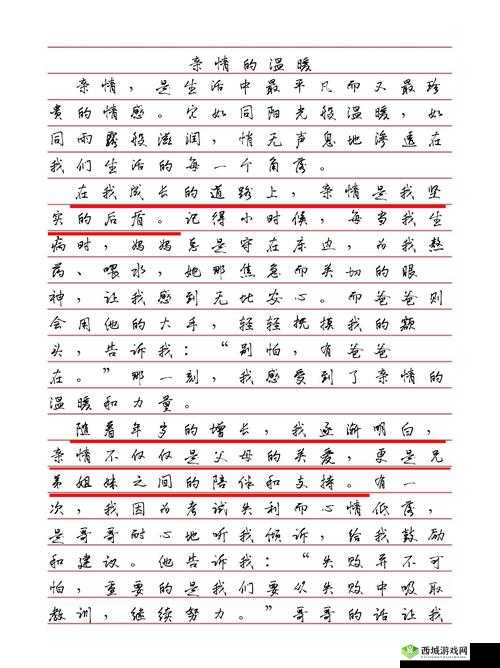 亲情的温暖
亲情，是生活中最平凡而又最珍
贵的情感。它如同阳光般温暖，如
同雨露般滋润，悄无声息地渗透在
我们生活的每一个角落。
在我成长的道路上，亲情是我坚
实的后盾。记得小时候，每当我生
病时，妈妈总是守在床边，为我熬
药、喂水，她那焦急而关切的眼
神，让我感到无比安心。而爸爸则
会用他的大手，轻轻抚摸我的额
头，告诉我：“别怕，有爸爸
在。”那一刻，我感受到了亲情的
温暖和力量。
随着年岁的增长，我逐渐明白，
亲情不仅仅是父母的关爱，更是兄
弟姐妹之间的陪伴和支持。有一
次，我因为考试失利而心情低落，
是哥哥耐心地听我倾诉，给我鼓励
和建议。他告诉我：“失败并不可
怕，重要的是我们要从失败中吸取
教训，继续努力。”哥哥的话让我
西城游戏网